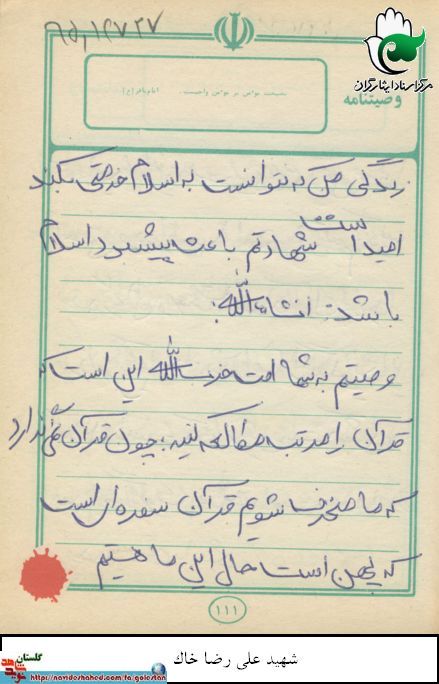 ۹۵٫۱۴۷۲۷
مرکز اسناد ایثارگران
وصیتنامه
زندگی من که نتوانست به اسلام خدمتی بکند
امید است شهادتم باعث پیشبرد اسلام
باشد. انشاءالله.
وصیتم به شما امت حزب الله این است که
قدآن را مرتب مطالعه کنید، چون قرآن نمی‌گذارد
که ما منحرف شویم قرآن سفره‌ای است
که پهن است حال این ما هستیم
۱۱۱
شهید علی رضا خاك
گلستان
https://navideshahed.com/fa/golestan